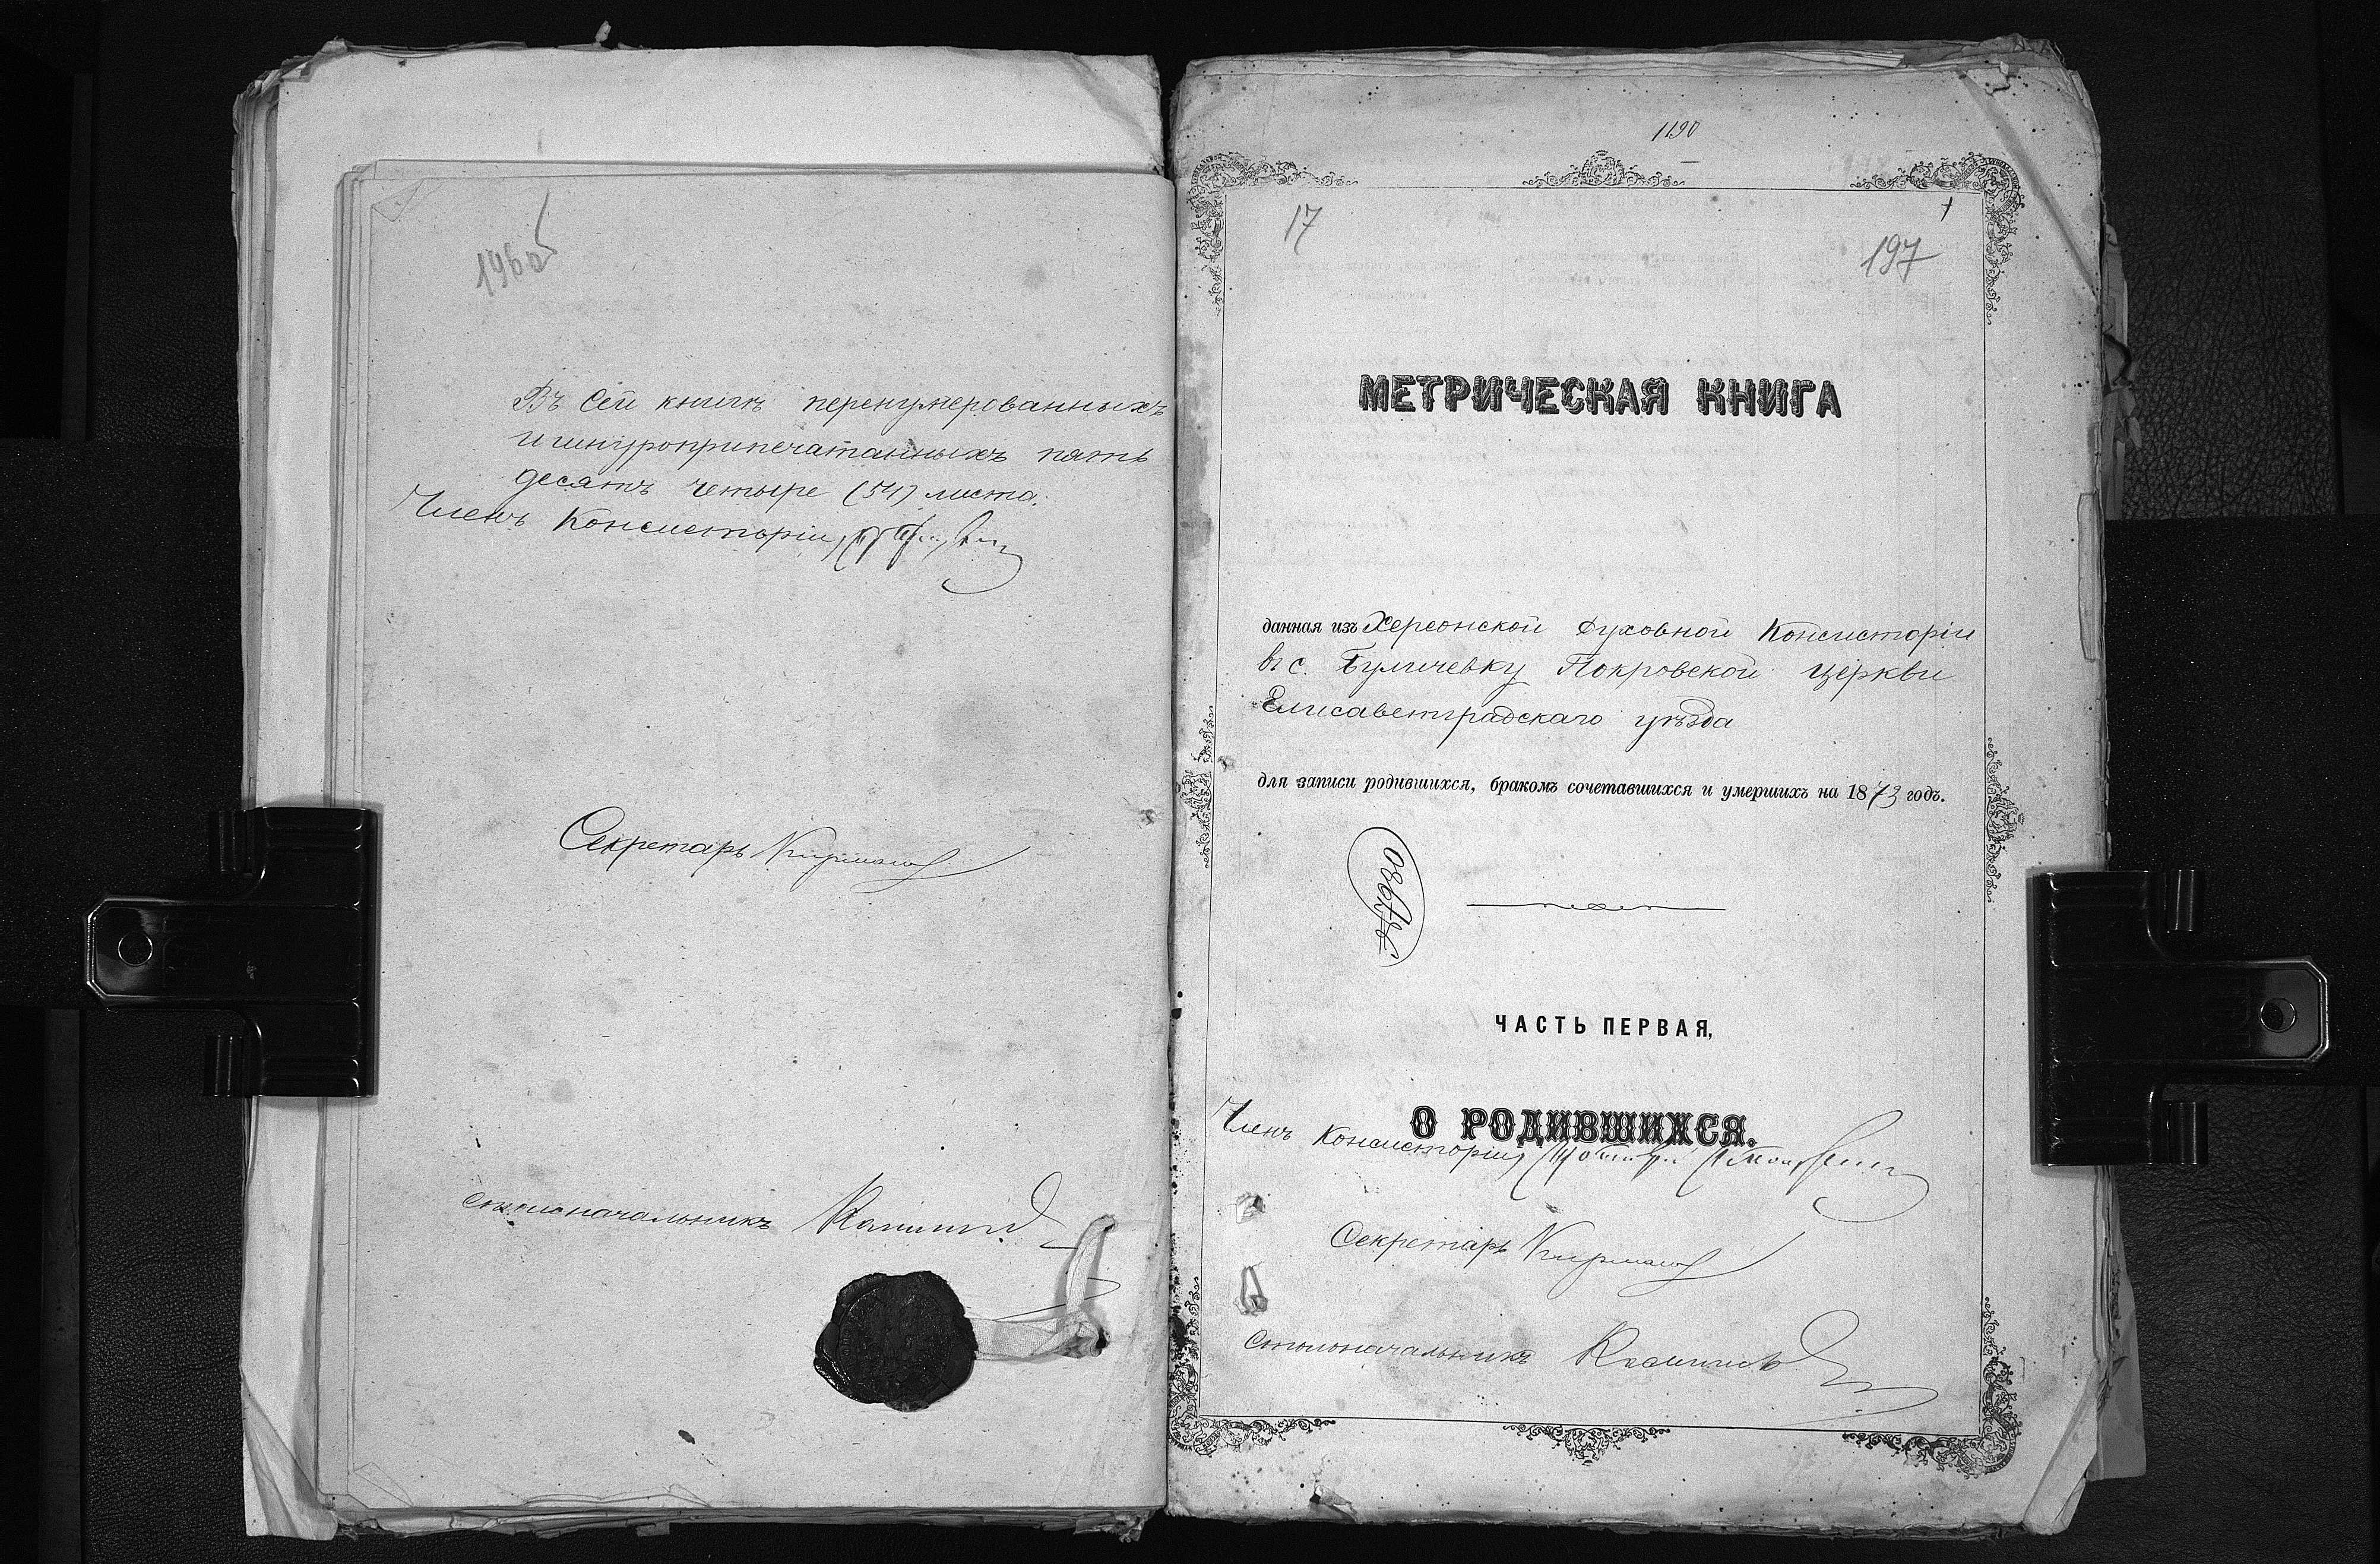 196об
Въ сей книгѣ перенумерованныхъ
и шнуроприпечатанныхъ пять
десятъ четыре (54) листа.
Членъ Консисторіи,
Секретарь
Столоначальникъ
1190
17
197
МЕТРИЧЕСКАЯ КНИГА
данная изъ Херсонской Духовной Консисторіи
въ с. Буличевку Покровской церкви
Елисаветградскаго уѣзда
для записи родившихся, бракомъ сочетавшихся и умершихъ на 1873 годъ.
ЧАСТЬ ПЕРВАЯ,
О РОДИВШИХСЯ.
Членъ Консисторіи,
Секретарь
Столоначальникъ